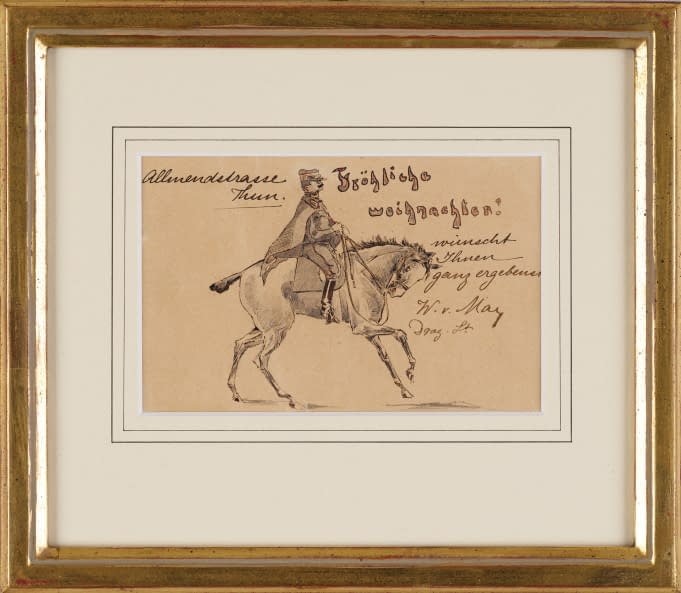 Allmendstrasse
Thun.
Fröhliche
Weihnachten!
wünscht
Ihnen
ganz ergebenst
W. v. May
Drag. Lt